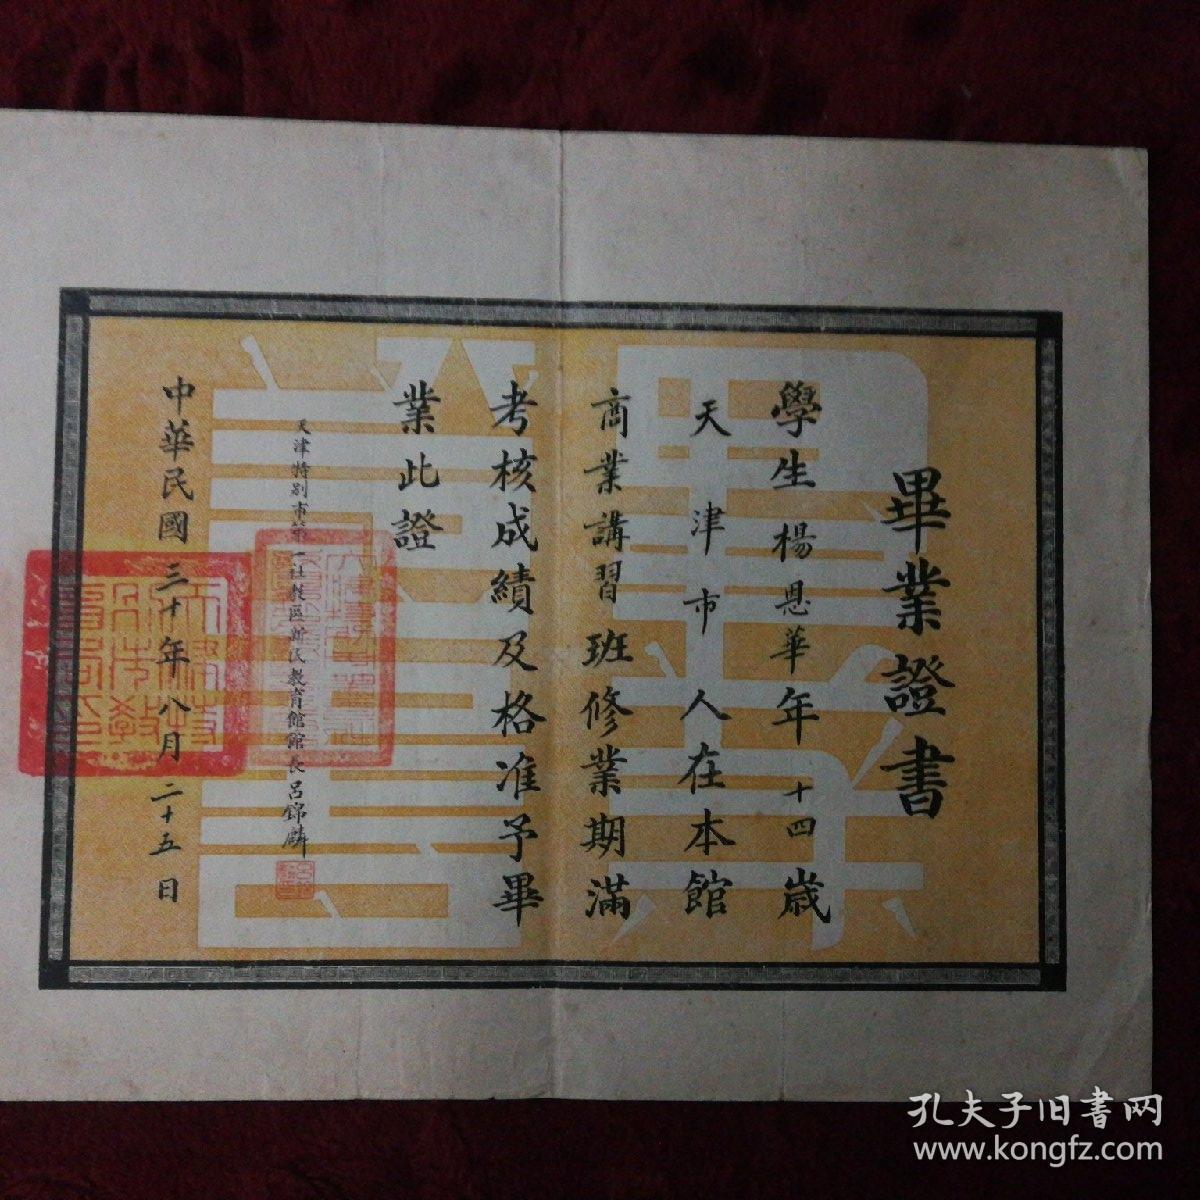 畢業證書
學生楊恩華年十四歲
天津市人在本館
商業講習班修業期滿
考核成績及格准予畢
業此證
天津特別市第一社教區新民教育館館長呂錦麟
中華民國三十年八月二十五日
孔夫子旧書网
www.kongfz.com